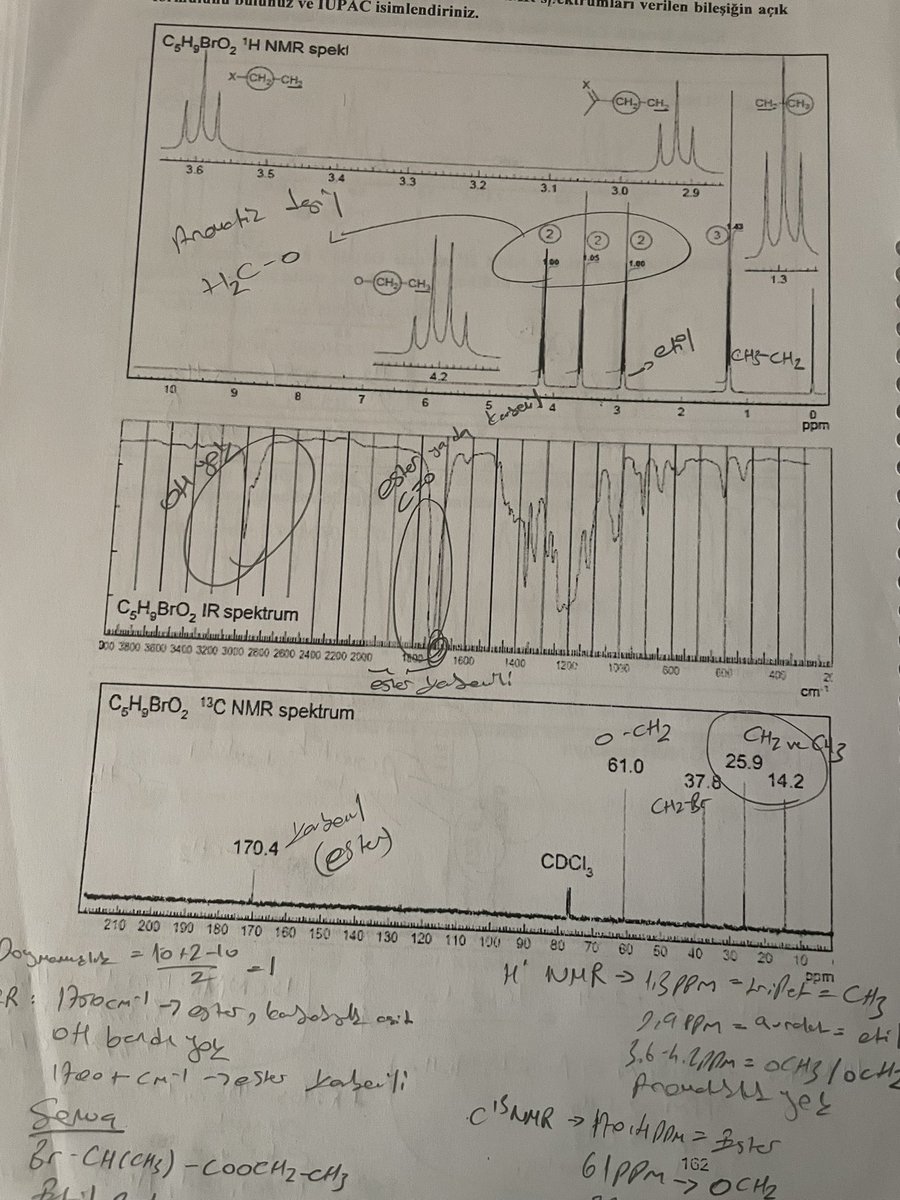 spektrumları verilen bileşiğin açık
bulunuz ve IUPAC isimlendiriniz.
C5H9BrO2 ¹H NMR spekt
X-CH2-CH2
X
CH2-CH2
CH2-CH3
3.6 3.5 3.4 3.3 3.2 3.1 3.0 2.9
Aromatiz değil
H2C-O
2 2 2 3
1.00 1.05 1.00 1.43
1.3
O-CH2-CH3
4.2
etil
CH3-CH2
10 9 8 7 6 5 4 3 2 1 0
ppm
OH yok
ester yada
karbonil
C=O
C5H9BrO2 IR spektrum
3800 3600 3400 3200 3000 2800 2600 2400 2200 2000 1800 1600 1400 1200 1000 800 600 400
cm-1
ester karbonili
C5H9BrO2 ¹³C NMR spektrum
O-CH2
CH2 ve CH3
61.0
25.9
37.8
14.2
CH2-Br
170.4
karbonil
(ester)
CDCl3
210 200 190 180 170 160 150 140 130 120 110 100 90 80 70 60 50 40 30 20 10
ppm
Doymamışlık = 10+2-10
2
=1
H' NMR → 1,3 ppm = triplet = CH3
IR: 1700cm-1 → ester, karboksilik asit
OH bandı yok
2,9 ppm = quartet = etil
1700+ cm-1 → ester karbonili
3.6-4.2 ppm = OCH3/OCH2
Aromatiklik yok
C13NMR → 170.4 ppm = Ester
Br-CH(CH3)-COOCH2-CH3
61 ppm → OCH2
162